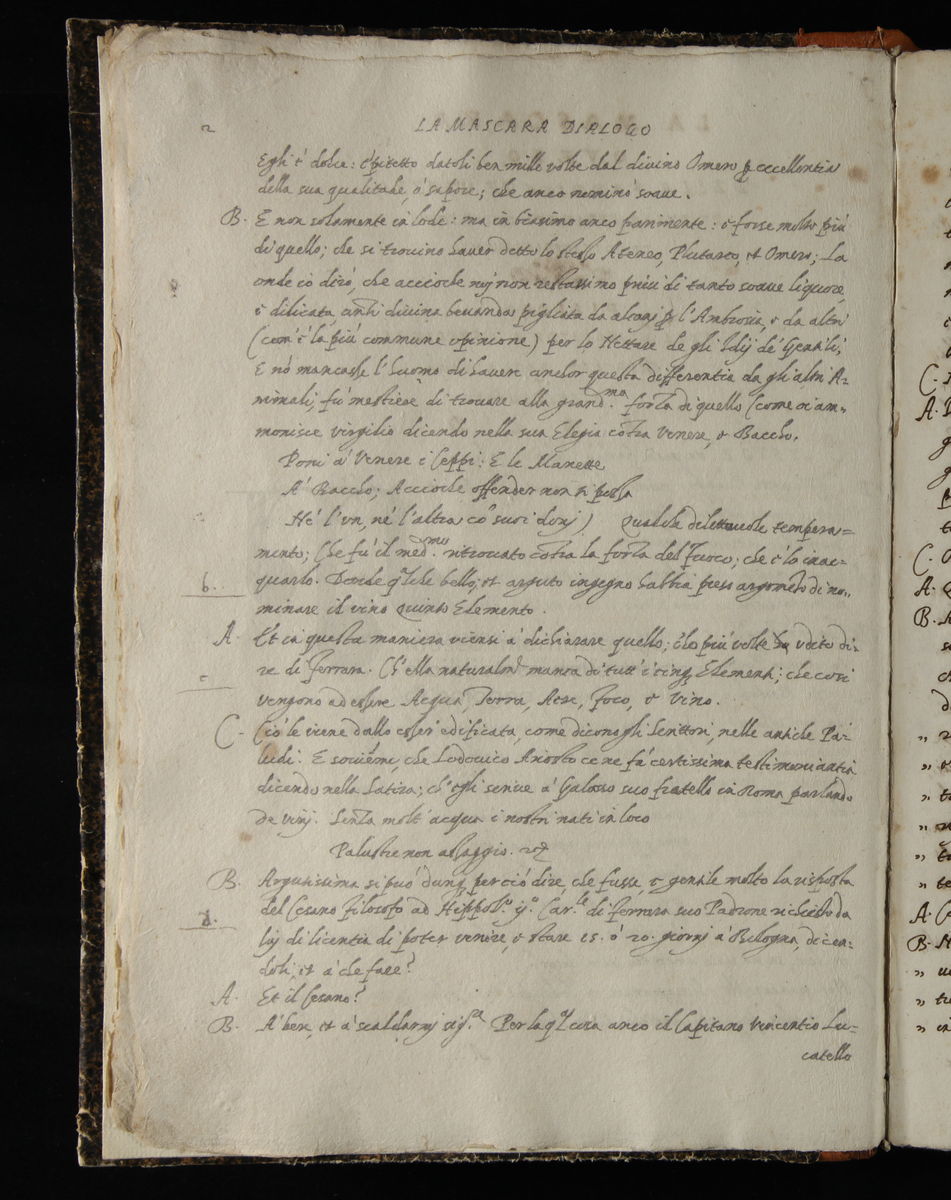 2 LA MASCARA DIALOGO
Egli è dolce: epitetto datoli ben mille volte dal divino Omero p eccellentia
della sua qualitade, ò sapore; che anco nominò soave.
B. E non solamente in lode: ma in biasimo anco parimente: e forse molto più
di quello; che si trovino haver detto lo stesso Ateneo, Plutarco, et Omero; La
onde io dirò, che accioche noj non restassimo privi di tanto soave liquore,
e dilicata anzi divina bevanda pigliata da alcuni p l'Ambrosia, e da altri
(com'è la più commune opinione) per lo Nettare de gli Idij de' Gentili;
E nò mancasse l'huomo di havere anchor questa differentia da gli altri A-
nimali, fù mestiere di trovare alla grand.ma forza di quello (come ci am-
monisce virgilio dicendo nella sua Elegia cõtra Venere, e Baccho.
Poni à Venere i ceppi: E le Manette
A' Baccho; Accioche offender non ti possa
Nè l'un, né l'altra co' suoi donj) Qualche dilettevole tempera-
mento; Che fù il med.mo ritrovato cõtra la forza del fuoco; che è lo inac-
b. quarlo. Donde qlche bello, et arguto ingegno habbia preso argomẽto di no-
minare il vino Quinto Elemento.
A. Et in questa maniera viensi à dichiarare quello; ch'io più volte ho udito di-
re di ferrara. Ch'ella naturalmẽ manca di tutt'i cinq Elementi; che così
c vengono ad essere Acqua, Terra, Aere, Foco, e Vino.
C. Ciò le viene dallo esser edificata, come dicono gli scrittori, nelle antiche Pa-
ludi. E sovièmi, che Lodovico Ariosto ce ne fà certissima testimoniantia
dicendo nella Satira; ch'egli scrive à Galasso suo fratello in Roma parlando
de vinj. Senza molt'acqua i nostri nati in loco
Palustre non assaggio.
B. Argutissima si può dunq perciò dire, che fusse, e gentile molto la risposta
d. del Cesano filosofo ad Hippol.o Car.le di ferrara suo Padrone richiesto da
luj di licentia di poter venire, e stare 15. ò 20. giorni à Bologna, dicen-
doli, et à che fare?
A. Et il Cesano?
B. A' bere, et à scaldarmj sig.r Per la ql cosa anco il Capitano Vincentio Lu-
catello